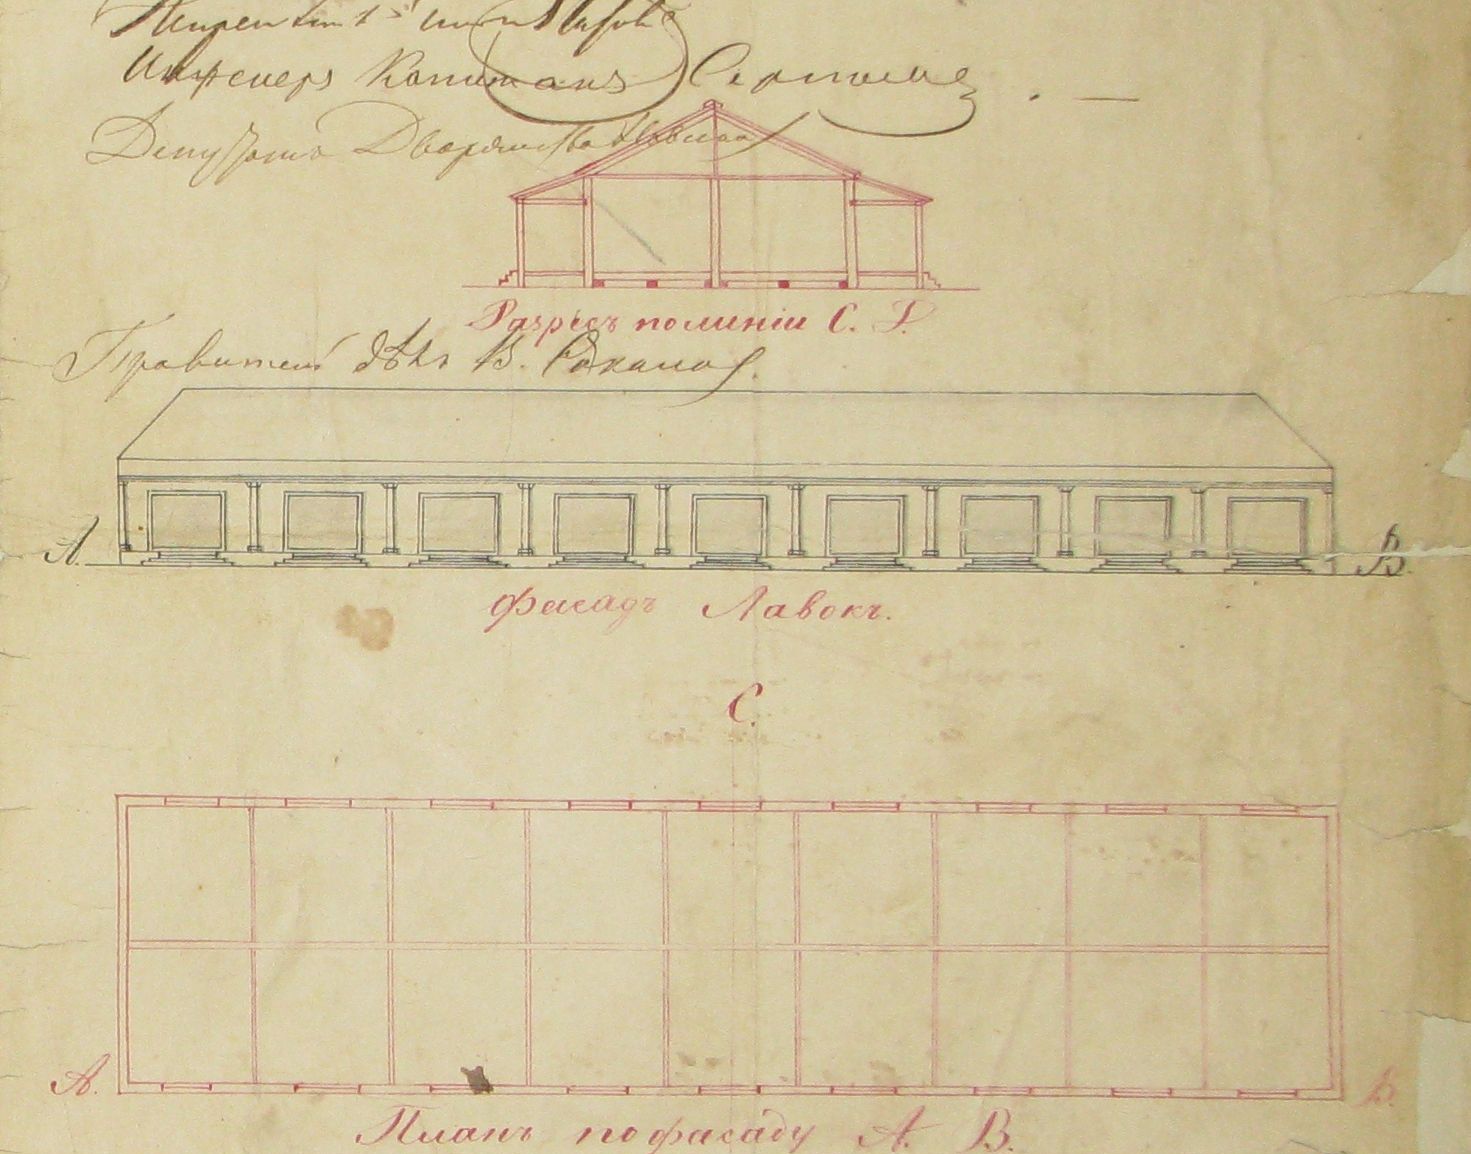 Инженеръ Капитанъ
Депутатъ Дворянства
Разрѣсъ по линіи С. D.
Правитель дѣлъ В.
А. В.
фасадъ Лавокъ.
С.
А. В.
Планъ по фасаду А. В.